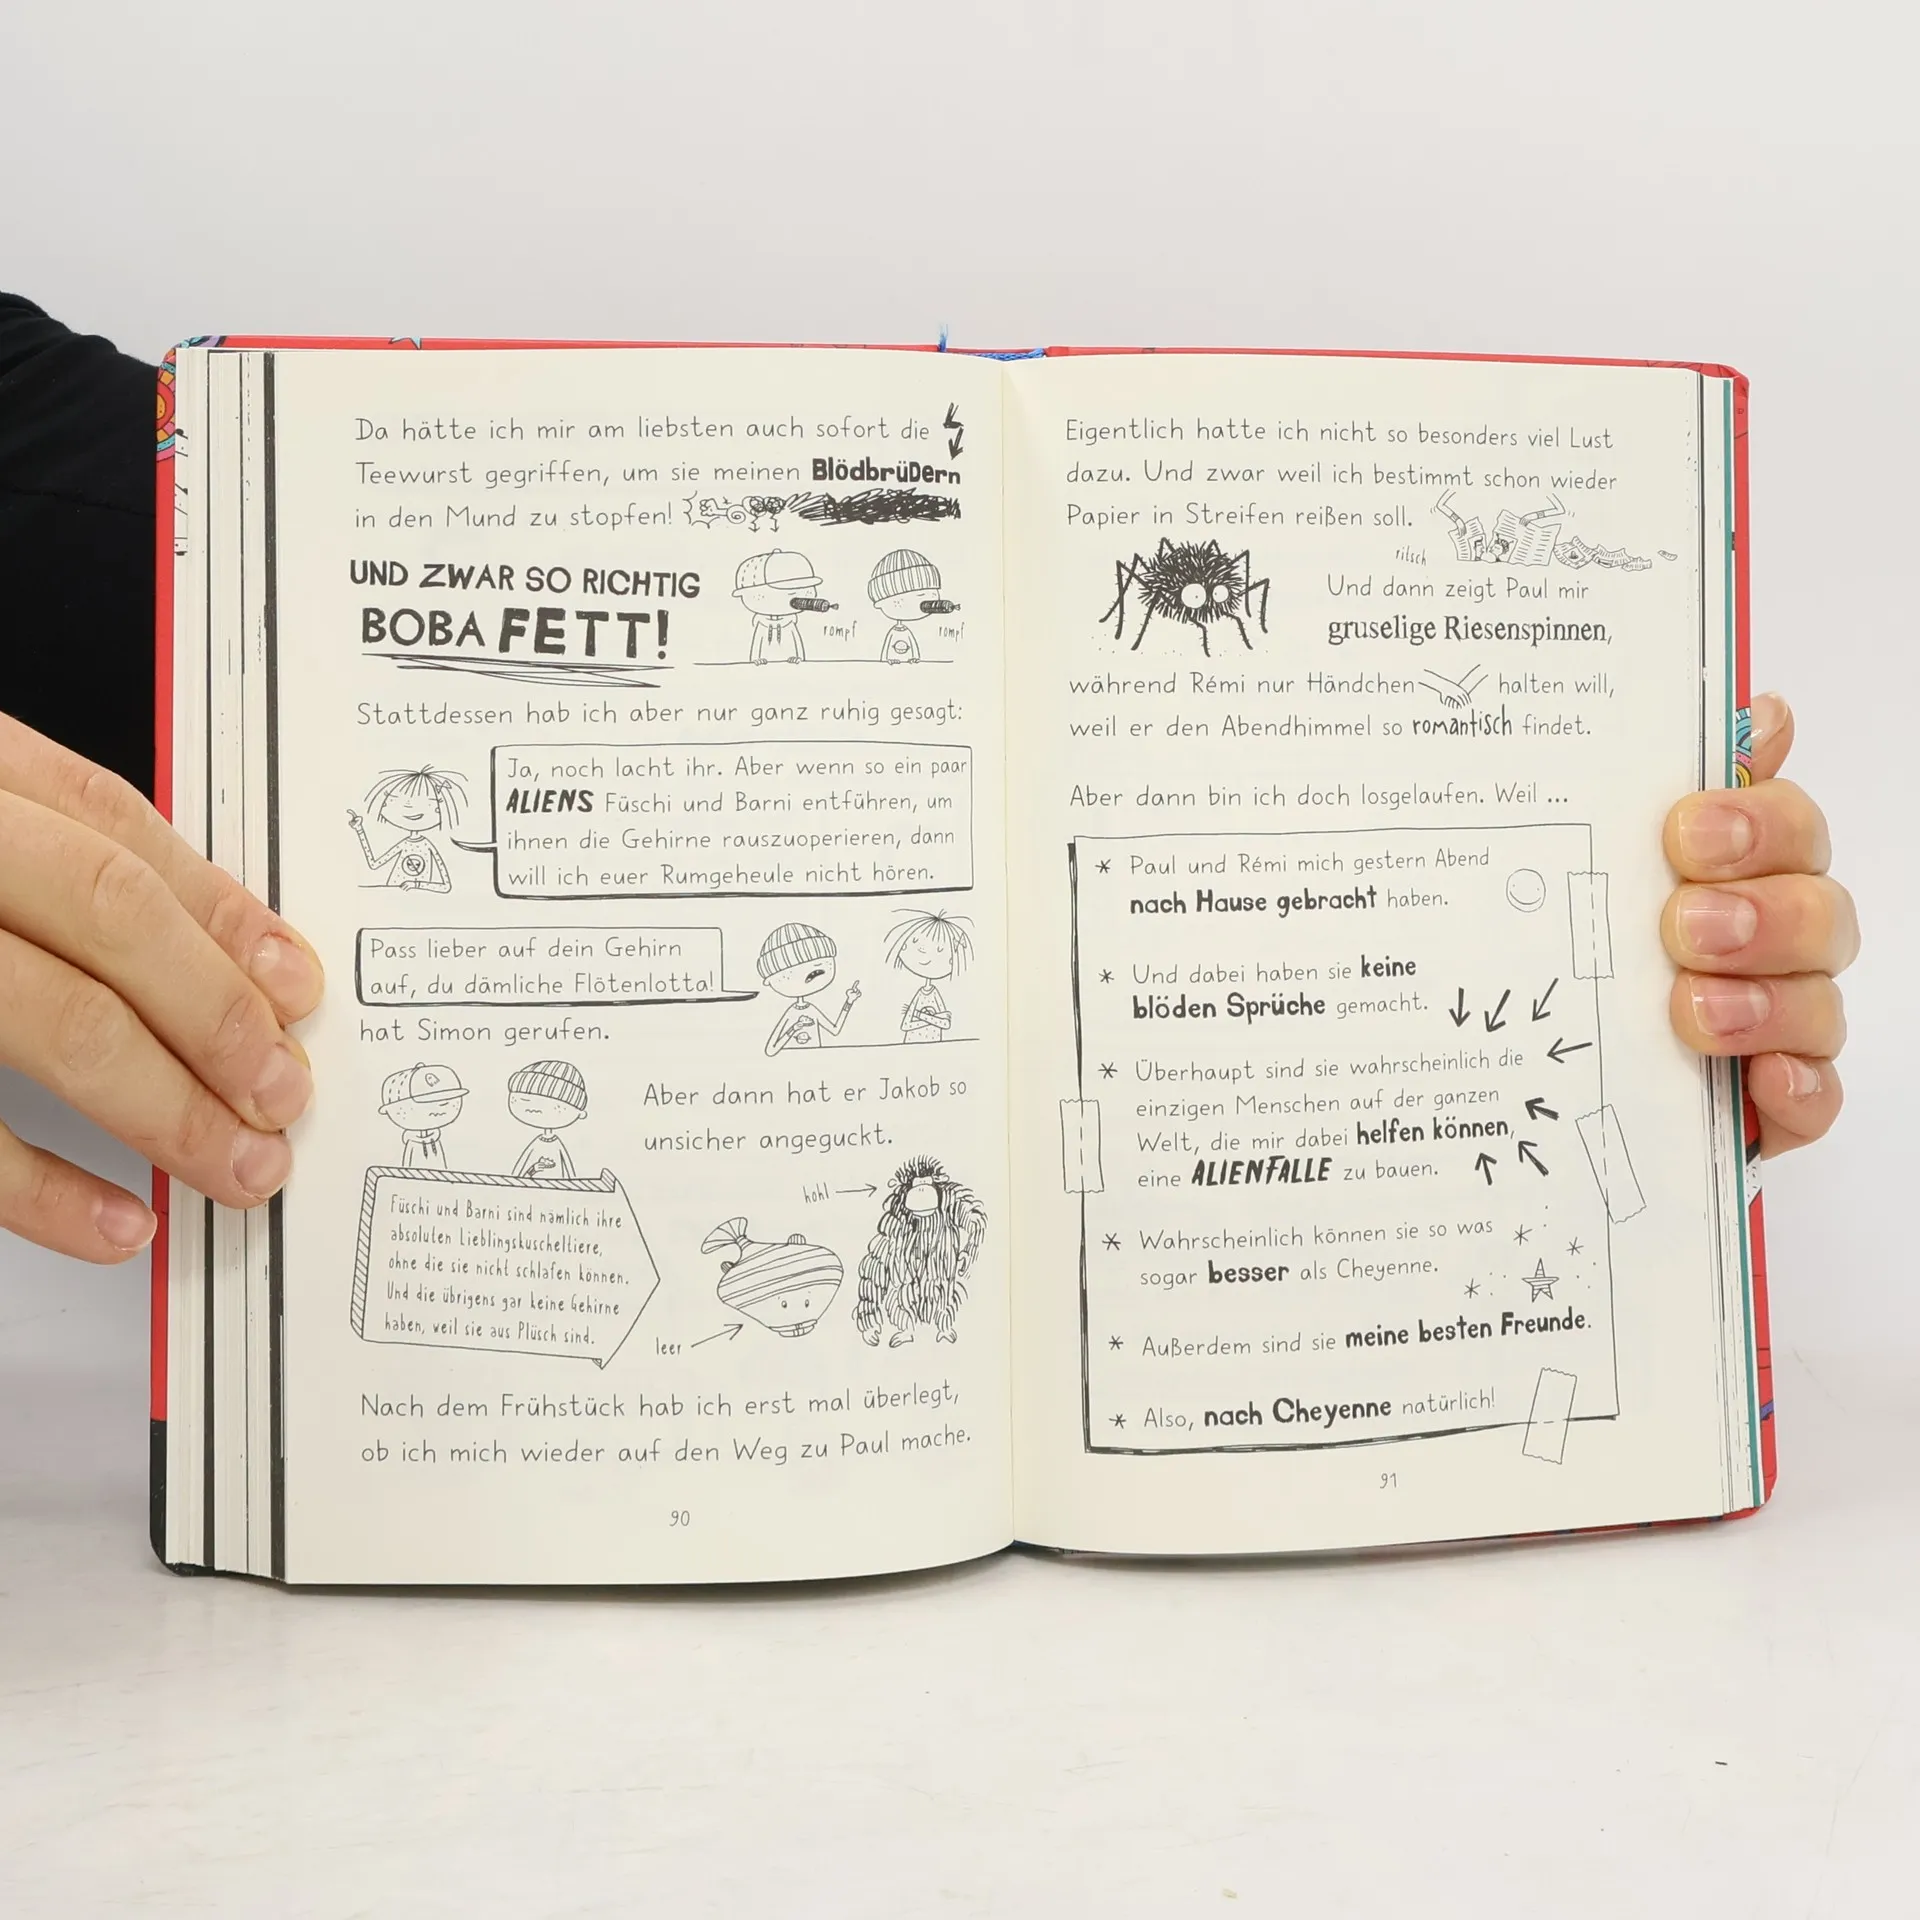 Da hätte ich mir am liebsten auch sofort die
Teewurst gegriffen, um sie meinen BlödbrüDern
in den Mund zu stopfen!
UND ZWAR SO RICHTIG
BOBA FETT!
rompf
rompf
Stattdessen hab ich aber nur ganz ruhig gesagt:
Ja, noch lacht ihr. Aber wenn so ein paar
ALIENS Füschi und Barni entführen, um
ihnen die Gehirne rauszuoperieren, dann
will ich euer Rumgeheule nicht hören.
Pass lieber auf dein Gehirn
auf, du dämliche Flötenlotta!
hat Simon gerufen.
Aber dann hat er Jakob so
unsicher angeguckt.
Füschi und Barni sind nämlich ihre
absoluten Lieblingskuscheltiere,
ohne die sie nicht schlafen können.
Und die übrigens gar keine Gehirne
haben, weil sie aus Plüsch sind.
hohl
leer
Nach dem Frühstück hab ich erst mal überlegt,
ob ich mich wieder auf den Weg zu Paul mache.
90
Eigentlich hatte ich nicht so besonders viel Lust
dazu. Und zwar weil ich bestimmt schon wieder
Papier in Streifen reißen soll.
ritsch
Und dann zeigt Paul mir
gruselige Riesenspinnen,
während Rémi nur Händchen halten will,
weil er den Abendhimmel so romantisch findet.
Aber dann bin ich doch losgelaufen. Weil ...
* Paul und Rémi mich gestern Abend
nach Hause gebracht haben.
* Und dabei haben sie keine
blöden Sprüche gemacht.
* Überhaupt sind sie wahrscheinlich die
einzigen Menschen auf der ganzen
Welt, die mir dabei helfen können,
eine ALIENFALLE zu bauen.
* Wahrscheinlich können sie so was
sogar besser als Cheyenne.
* Außerdem sind sie meine besten Freunde.
* Also, nach Cheyenne natürlich!
91